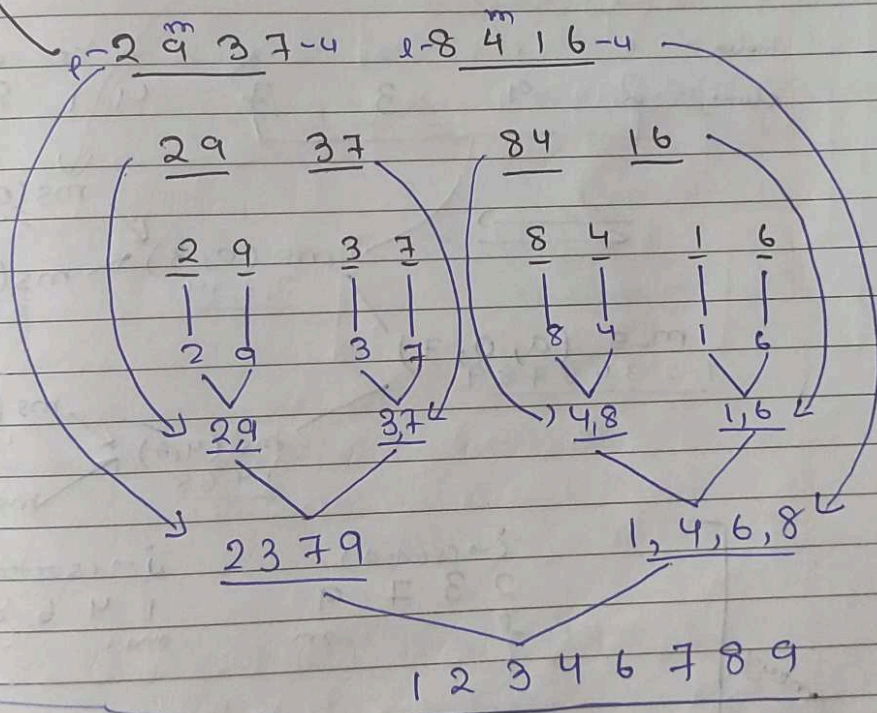 l-2 9 3 7-u l-8 4 1 6-u
m m
29 37 84 16
2 9 3 7 8 4 1 6
2 9 3 7 8 4 1 6
2,9 3,7 4,8 1,6
2 3 7 9 1, 4, 6, 8
1 2 3 4 6 7 8 9